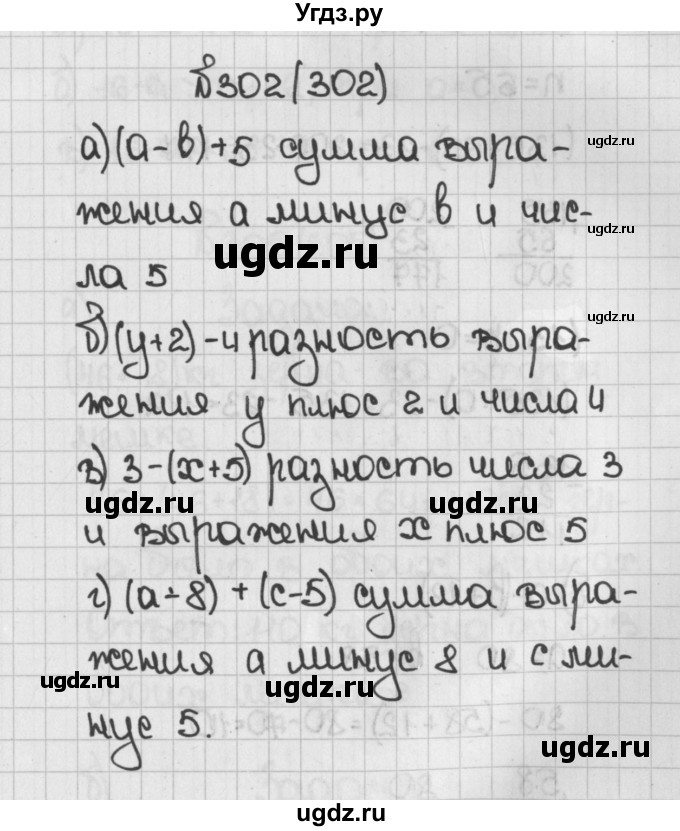 Угдз.ру
№302(302)
а)(а-в)+5 сумма выра-
ugdz.ru
жения а минус в и чис-
ugdz.ru
ugdz.ru
ла 5
ugdz.ru
б)(у+2)-4 разность выра-
жения у плюс 2 и числа 4
в) 3-(х+5) разность числа 3
ugdz.ru
ugdz.ru
и выражения х плюс 5
г) (а-8) + (с-5) сумма выра-
ugdz.ru
жения а минус 8 и с ми-
ugdz.ru
ugdz.ru
нус 5.
ugdz.ru
ugdz.ru